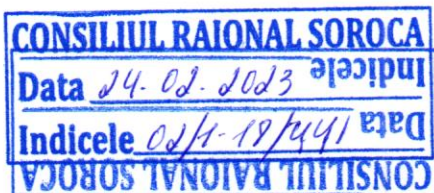 CONSILIUL RAIONAL SOROCA
Data 24. 02. 2023 Indicele
Indicele 02/1-18/ Data
CONSILIUL RAIONAL SOROCA